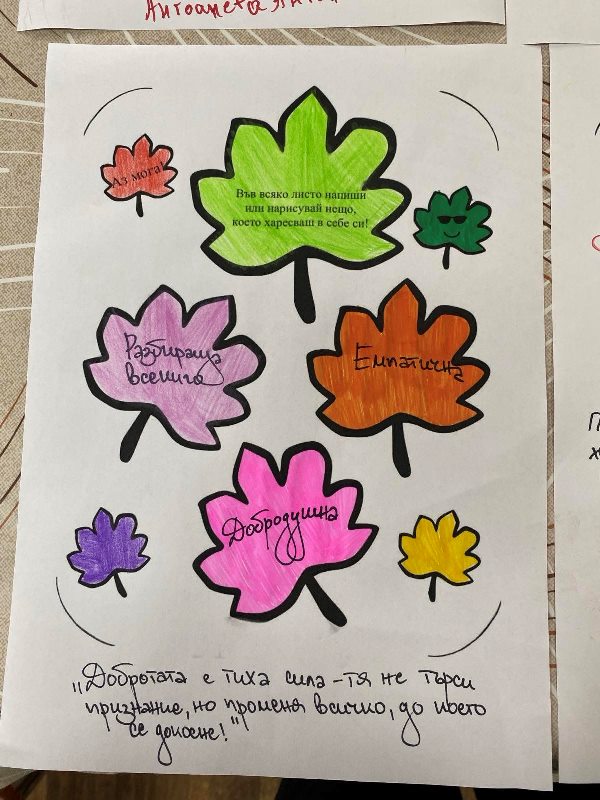 Антоанета
Аз мога!
Във всяко листо напиши
или нарисувай нещо,
което харесваш в себе си!
Разбираща
всекиго
Емпатична
Добродушна
„Добротата е тиха сила – тя не търси
признание, но променя всичко, до което
се докосне!"